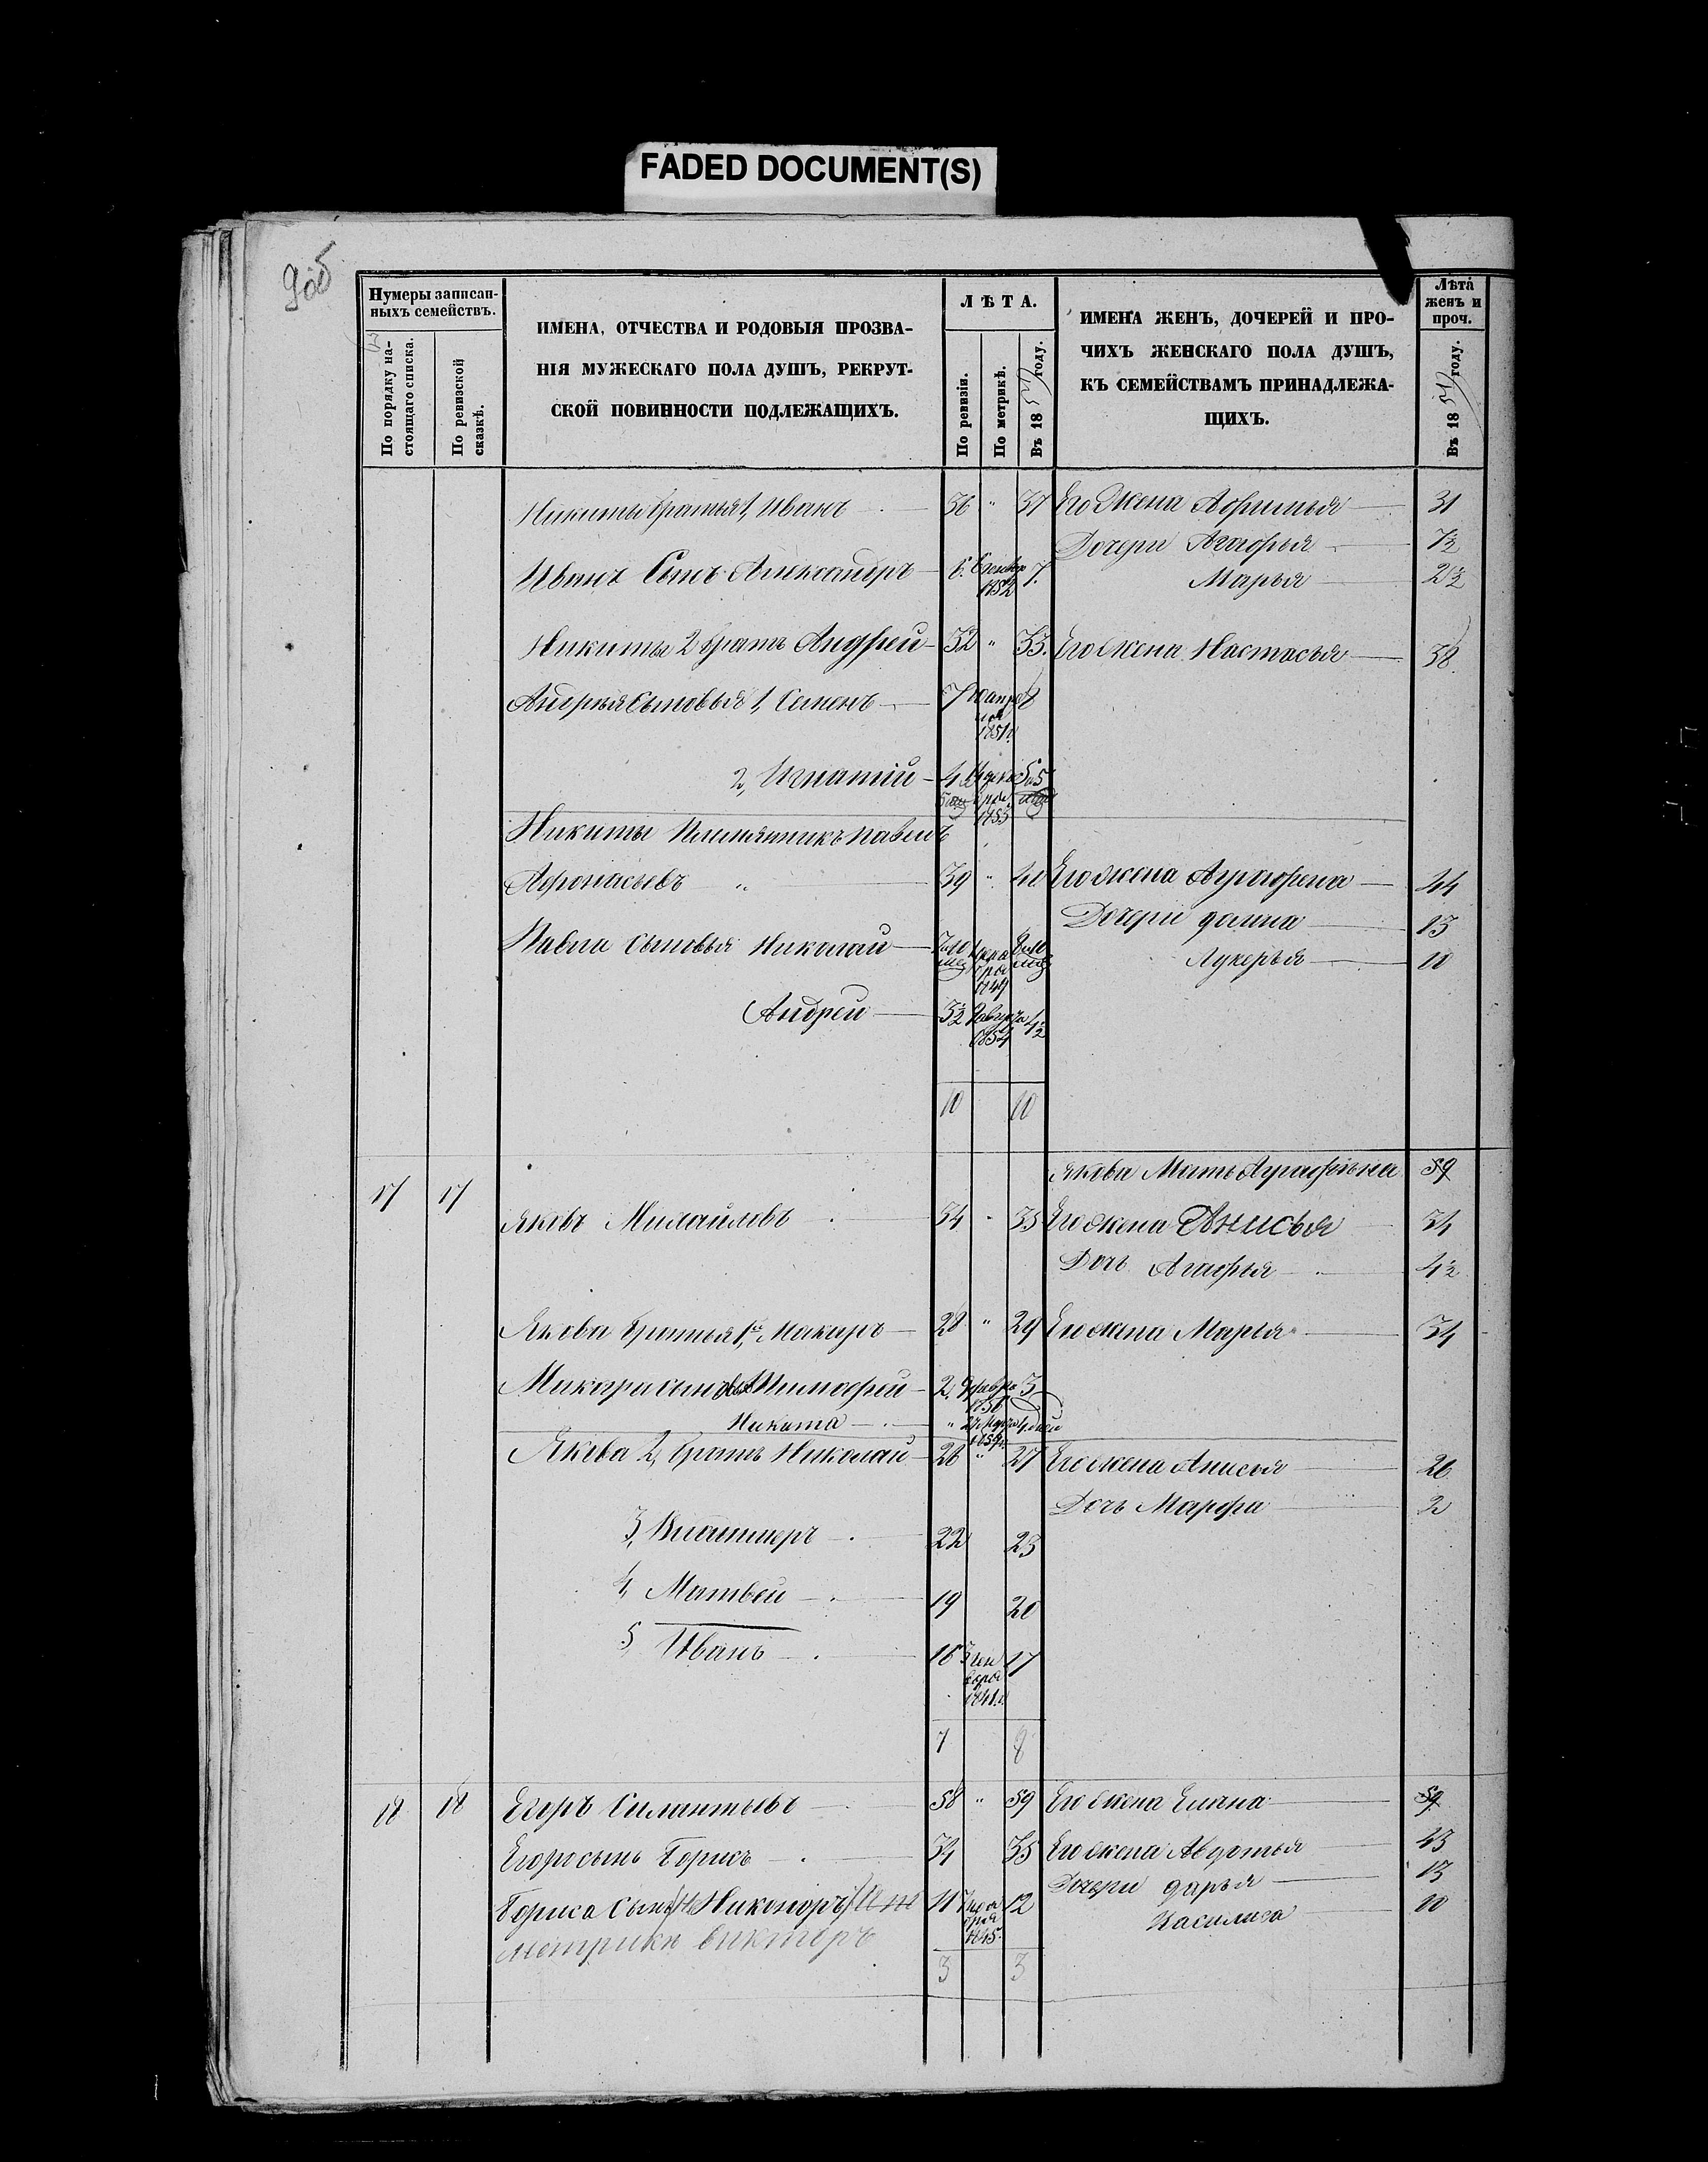 FADED DOCUMENT(S)
9 об
Нумеры записан-
ныхъ семействъ.
По порядку на-
стоящаго списка.
По ревизской
сказкѣ.
ИМЕНА, ОТЧЕСТВА И РОДОВЫЯ ПРОЗВА-
НІЯ МУЖЕСКАГО ПОЛА ДУШЪ, РЕКРУТ-
СКОЙ ПОВИННОСТИ ПОДЛЕЖАЩИХЪ.
ЛѢТА.
По ревизіи.
По метрикѣ.
Въ 18 году.
ИМЕНА ЖЕНЪ, ДОЧЕРЕЙ И ПРО-
ЧИХЪ ЖЕНСКАГО ПОЛА ДУШЪ,
КЪ СЕМЕЙСТВАМЪ ПРИНАДЛЕЖА-
ЩИХЪ.
Лѣта
женъ и
проч.
Въ 18 году.
Никиты братья 1, Иванъ 36 " 37 Его Жена 31
Дочери Агафья 7½
Ивана Сынъ Александръ 6. 1852 7. Марья 2½
Никиты 2 братъ Андрей 32 " 33. Его жена Настасья 38
Андрея сыновья 1, Семенъ 7 1851 8
2, Игнатій 4 1853
Никиты племянникъ Павелъ
Афонасьевъ " 39 " 40 Его жена Аграфена 44
Дочери 13
Павла сыновья Николай 1849 Лукерья 10
Андрей 3½ 1854 4½
10 10
Якова Мать Аграфѣна 59
17 17 Яковъ Михайловъ 34 " 35 Его жена Анисья 34
Дочь Агафья 4½
Якова братья 1й Макаръ 28 " 29 Его жена Марья 34
Макара сынъ Тимофей 2. 1856 3
Никита "
Якова 2, братъ Николай 26 " 27 Его жена Анисья 26
Дочь Марфа 2
3, Владимеръ 22 23
4, Матвей 19 20
5 Иванъ 16 1841 17
7 8
18 18 Егоръ Силантьевъ 58 " 59 Его жена Елена 59
Егора сынъ Борисъ 34 35 Его жена Авдотья 43
Дочери дарья 13
Бориса сынъ Никоноръ 11 1845 12 Василиса 10
метрики викторъ
3 3